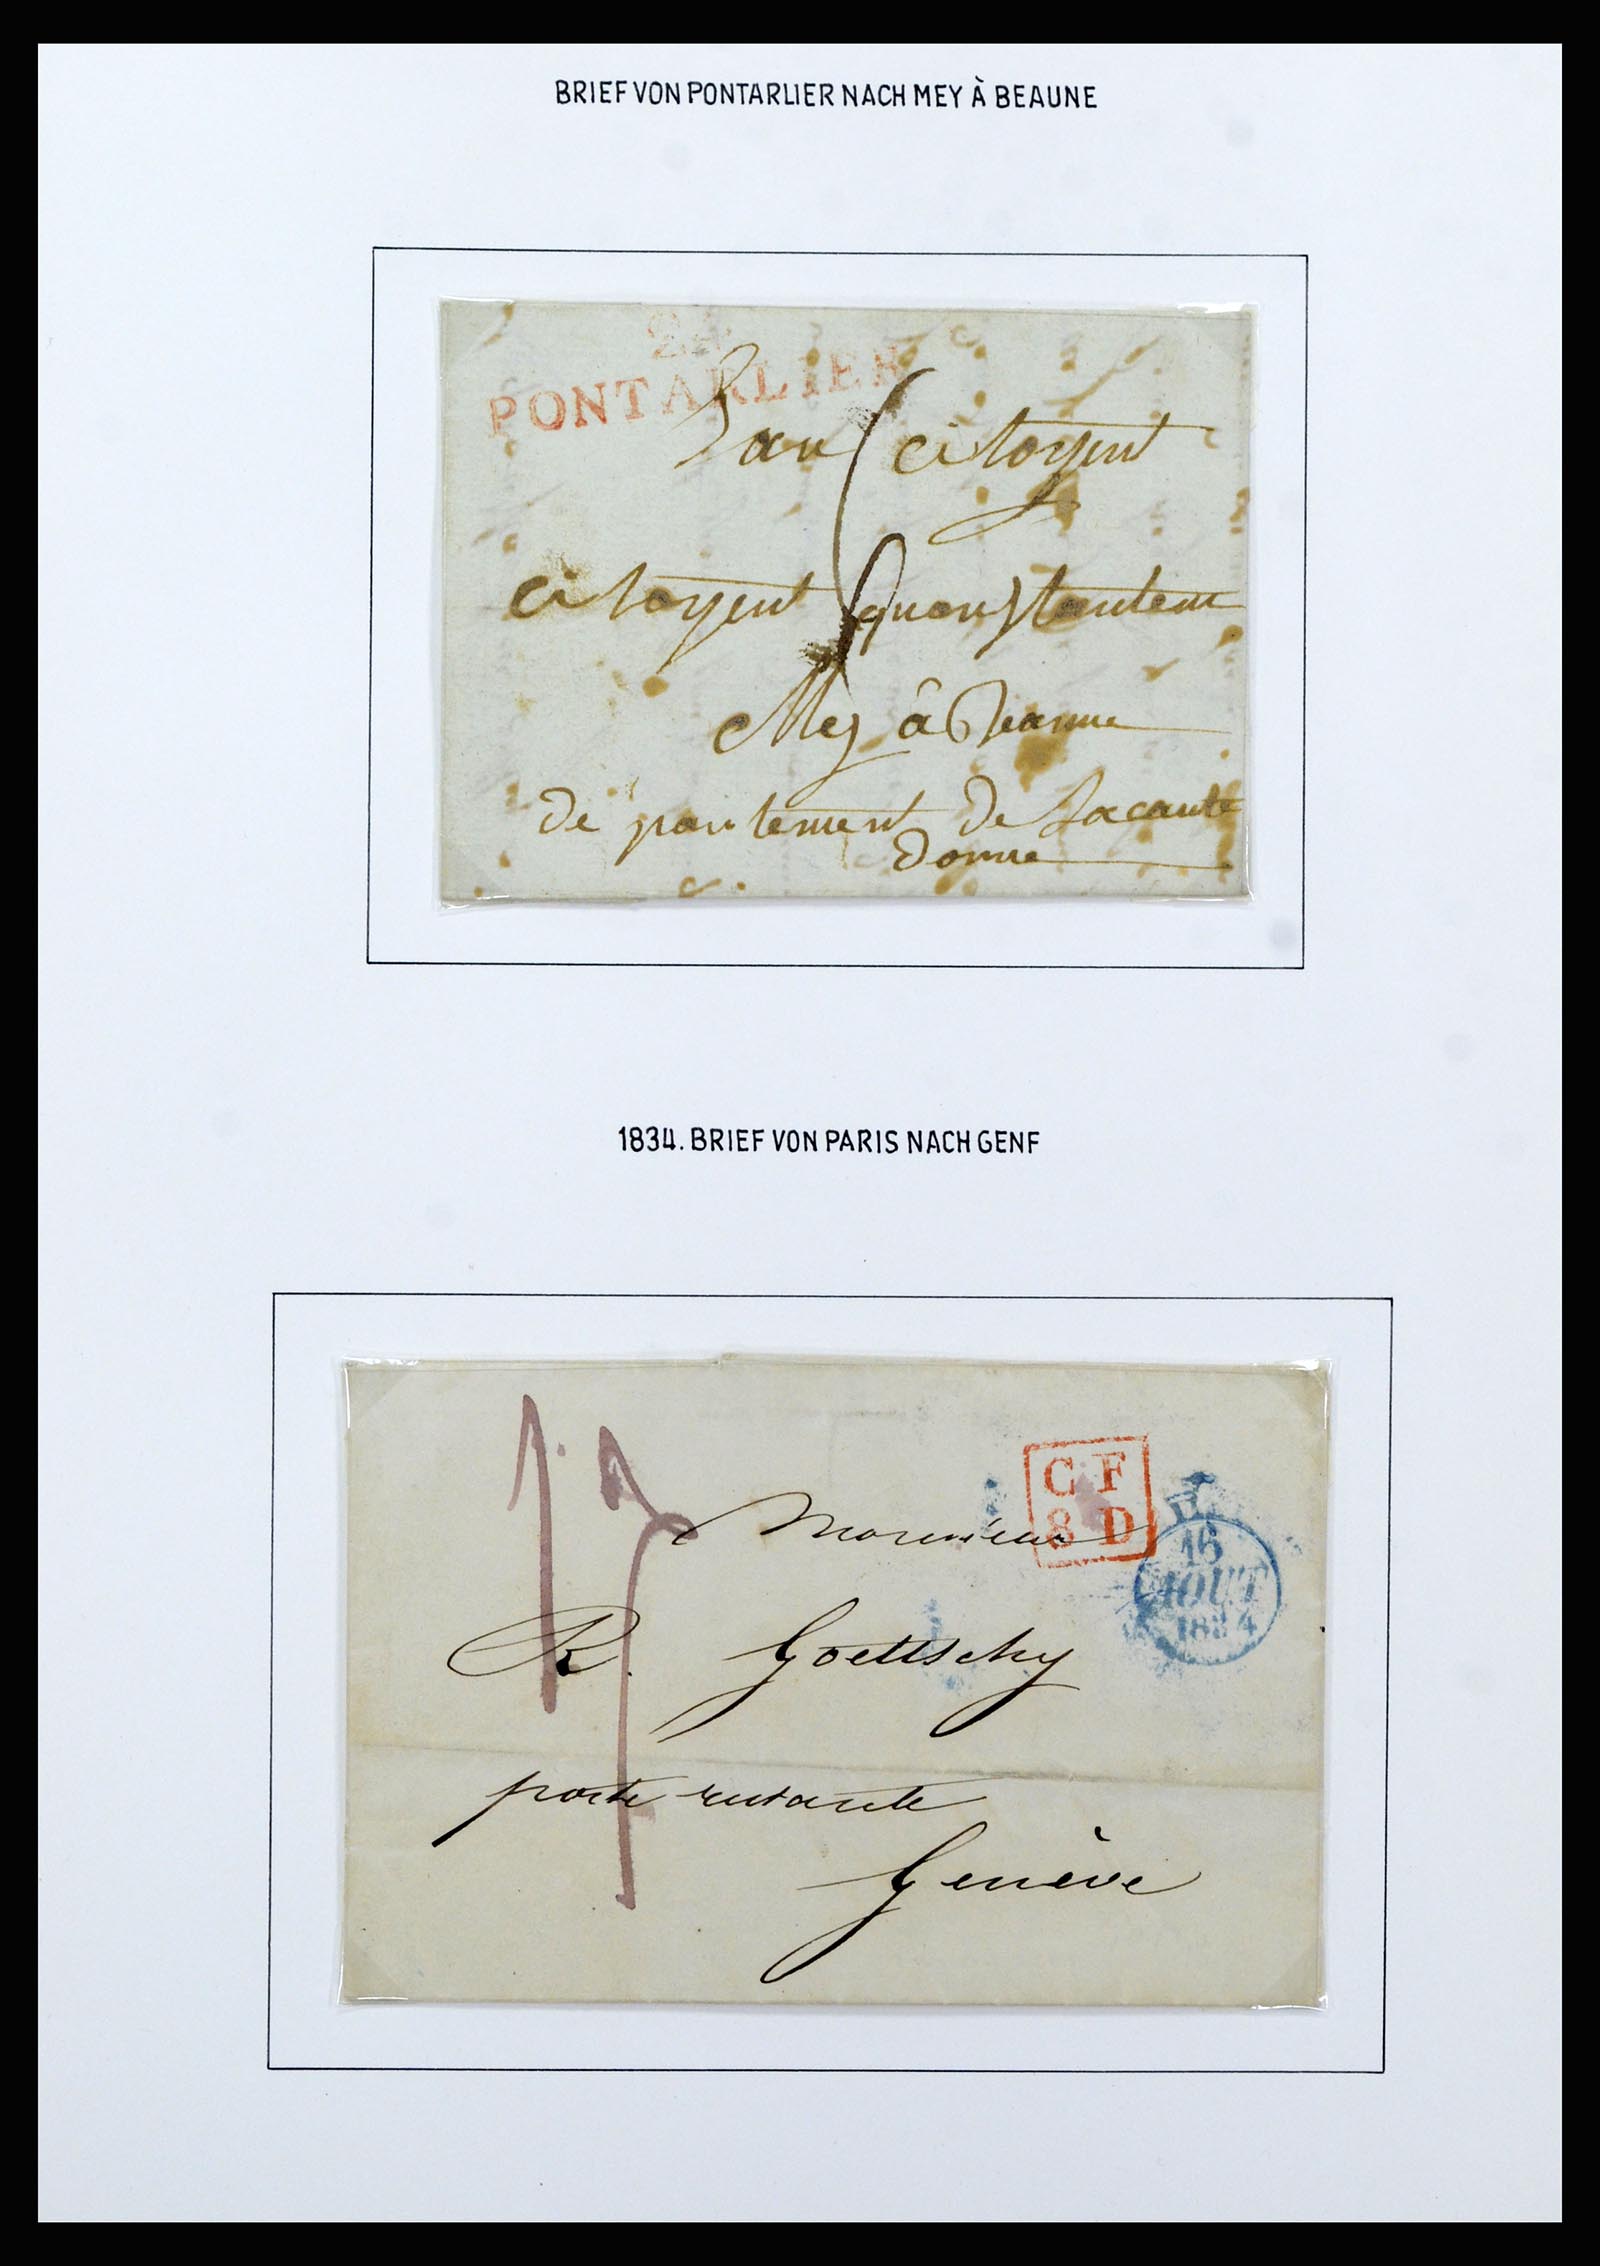 BRIEF VON PONTARLIER NACH MEY À BEAUNE
24
PONTARLIER
au citoyent
citoyent quonstantem
Mey â Beaune
de partement de Lacaute
Donne
1834. BRIEF VON PARIS NACH GENF
C F
8 D
16
AOUT
1834
Monsieur
R. Goettschy
poste restante
Genève